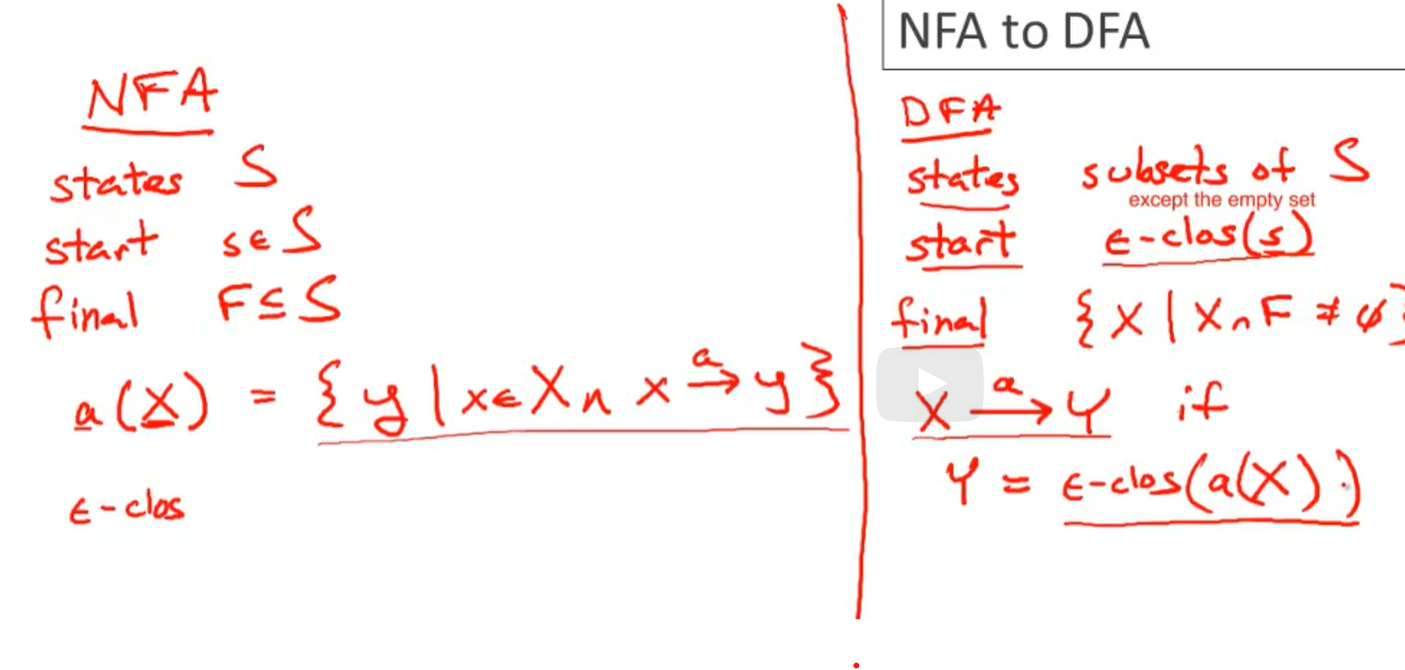 NFA
states S
start s∈S
final F⊆S
a(X) = {y | x∈X ∧ x -a→ y}
ϵ-clos
NFA to DFA
DFA
states subsets of S
except the empty set
start ϵ-clos(s)
final {X | X∩F ≠ ϕ}
X -a→ Y if
Y = ϵ-clos(a(X))